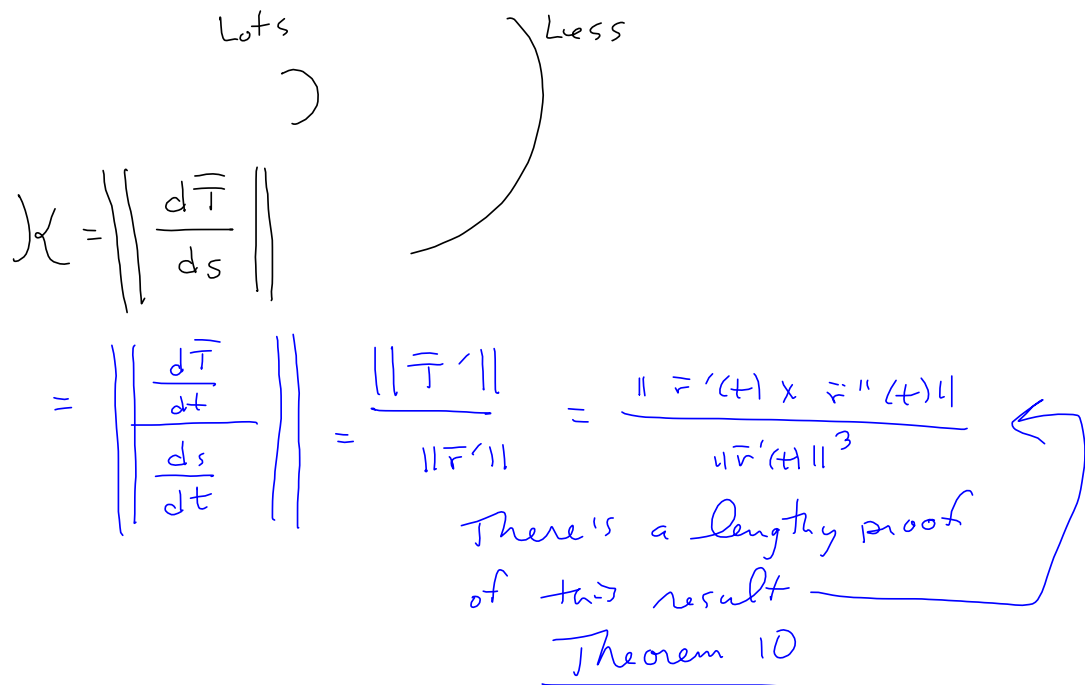 Lots Less
K = || dT̄/ds ||
= || (dT̄/dt)/(ds/dt) || = ||T̄′||/||r̄′|| = ||r̄′(t) x r̄″(t)||/||r̄′(t)||³
There's a lengthy proof
of this result
Theorem 10